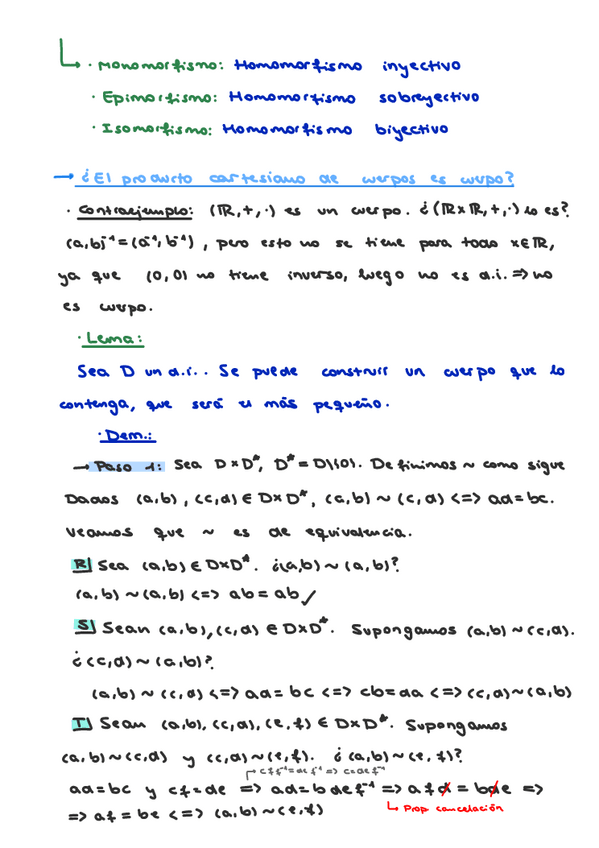 · Monomorfismo: Homomorfismo inyectivo
· Epimorfismo: Homomorfismo sobreyectivo
· Isomorfismo: Homomorfismo biyectivo
→ ¿El producto cartesiano de cuerpos es cuerpo?
· Contraejemplo: (ℝ,+,·) es un cuerpo. ¿(ℝxℝ,+,·) lo es?
(a,b)⁻¹=(a⁻¹,b⁻¹), pero esto no se tiene para todo x∈ℝ,
ya que (0,0) no tiene inverso, luego no es d.i. => no
es cuerpo.
· Lema:
Sea D un d.i.. Se puede construir un cuerpo que lo
contenga, que será el más pequeño.
· Dem.:
→ Paso 1: Sea D×D*, D*=D\{0}. Definimos ~ como sigue
Dados (a,b), (c,d) ∈ D×D*, (a,b) ~ (c,d) <=> ad=bc.
Veamos que ~ es de equivalencia.
R| Sea (a,b) ∈ D×D*. ¿(a,b) ~ (a,b)?
(a,b) ~ (a,b) <=> ab=ab ✓
S| Sean (a,b), (c,d) ∈ D×D*. Supongamos (a,b) ~ (c,d).
¿(c,d) ~ (a,b)?
(a,b) ~ (c,d) <=> ad=bc <=> cb=da <=> (c,d)~(a,b)
T| Sean (a,b), (c,d), (e,f) ∈ D×D*. Supongamos
(a,b)~(c,d) y (c,d)~(e,f). ¿(a,b)~(e,f)?
cff⁻¹=def⁻¹ => c=def⁻¹
ad=bc y cf=de => ad=bdef⁻¹ => afd=bde =>
=> af=be <=> (a,b)~(e,f)
↳ Prop cancelación